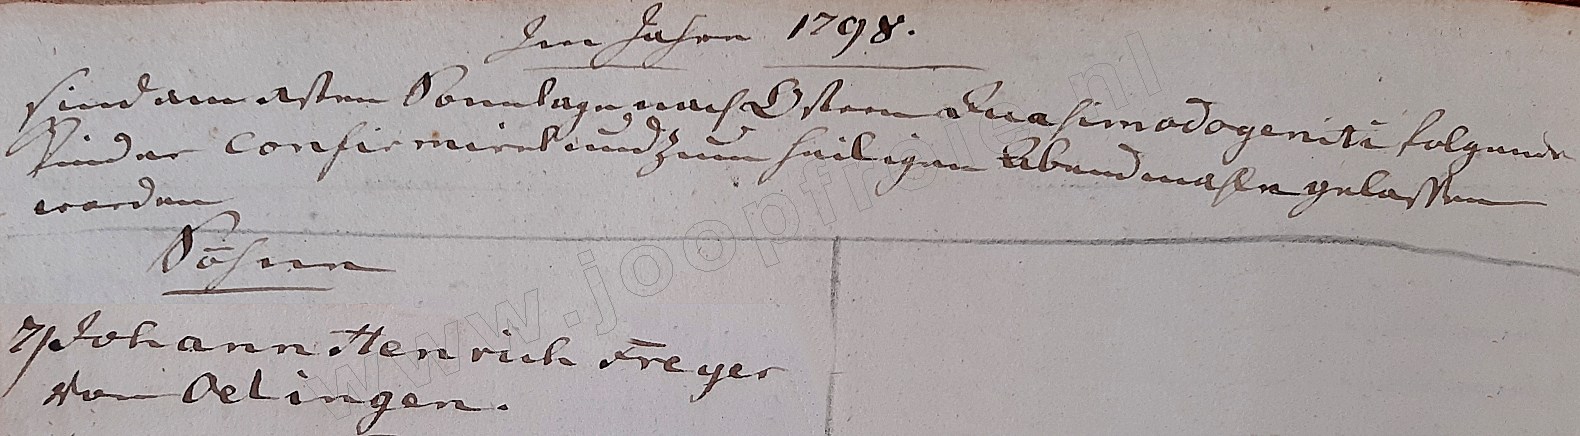 Im Jahre 1798.
sind am 1sten Sonntage nach Ostern Quasimodogeniti folgende
Kinder Confirmiret und zum heiligen Abendmahle gelassen
worden
Söhne
7) Johann Henrich Freyer
von Oelingen.
www.joopfrole.nl